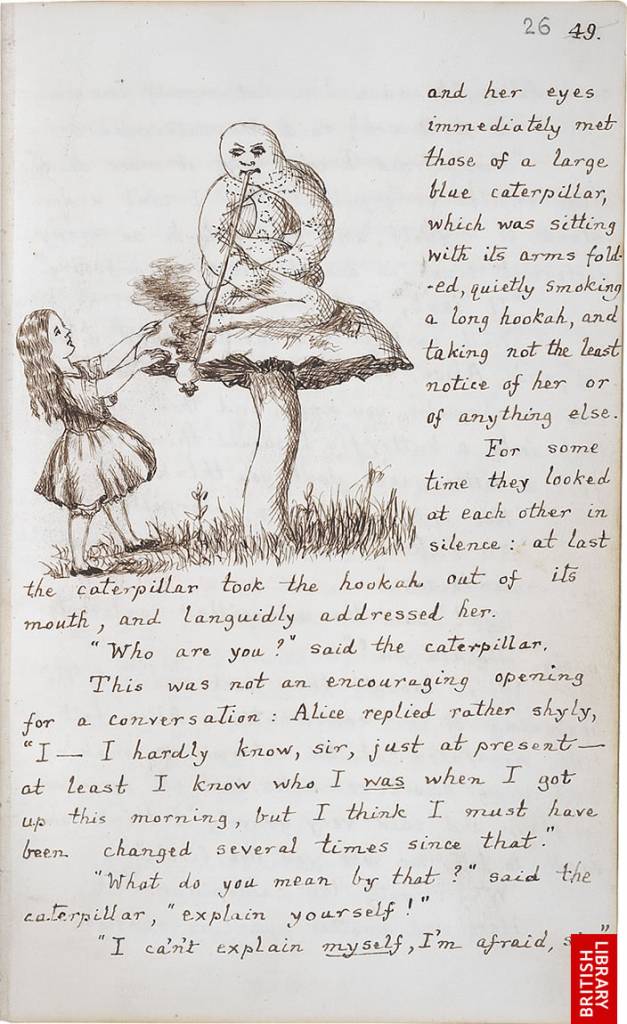 26 49.
and her eyes
immediately met
those of a large
blue caterpillar,
which was sitting
with its arms fold-
-ed, quietly smoking
a long hookah, and
taking not the least
notice of her or
of anything else.
For some
time they looked
at each other in
silence: at last
the caterpillar took the hookah out of its
mouth, and languidly addressed her.
"Who are you?" said the caterpillar.
This was not an encouraging opening
for a conversation: Alice replied rather shyly,
"I — I hardly know, sir, just at present —
at least I know who I was when I got
up this morning, but I think I must have
been changed several times since that."
"What do you mean by that?" said the
caterpillar, "explain yourself!"
"I can't explain myself, I'm afraid,
BRITISH
LIBRARY